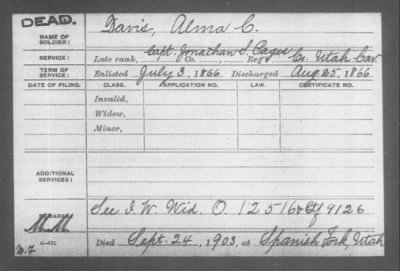 DEAD.
NAME OF SOLDIER: Davis, Alma C.
SERVICE: Late rank, Capt. Jonathan S. Pages Co. Reg't Co. Utah Cav.
TERM OF SERVICE: Enlisted July 3, 1866 Discharged Aug. 25, 1866.
DATE OF FILING. CLASS. APPLICATION NO. LAW. CERTIFICATE NO.
Invalid,
Widow,
Minor,
ADDITIONAL SERVICES:
See I. W. Wid. O. 12516 Ctf 9126
REMARKS:
Died Sept. 24, 1903, at Spanish Fork, Utah